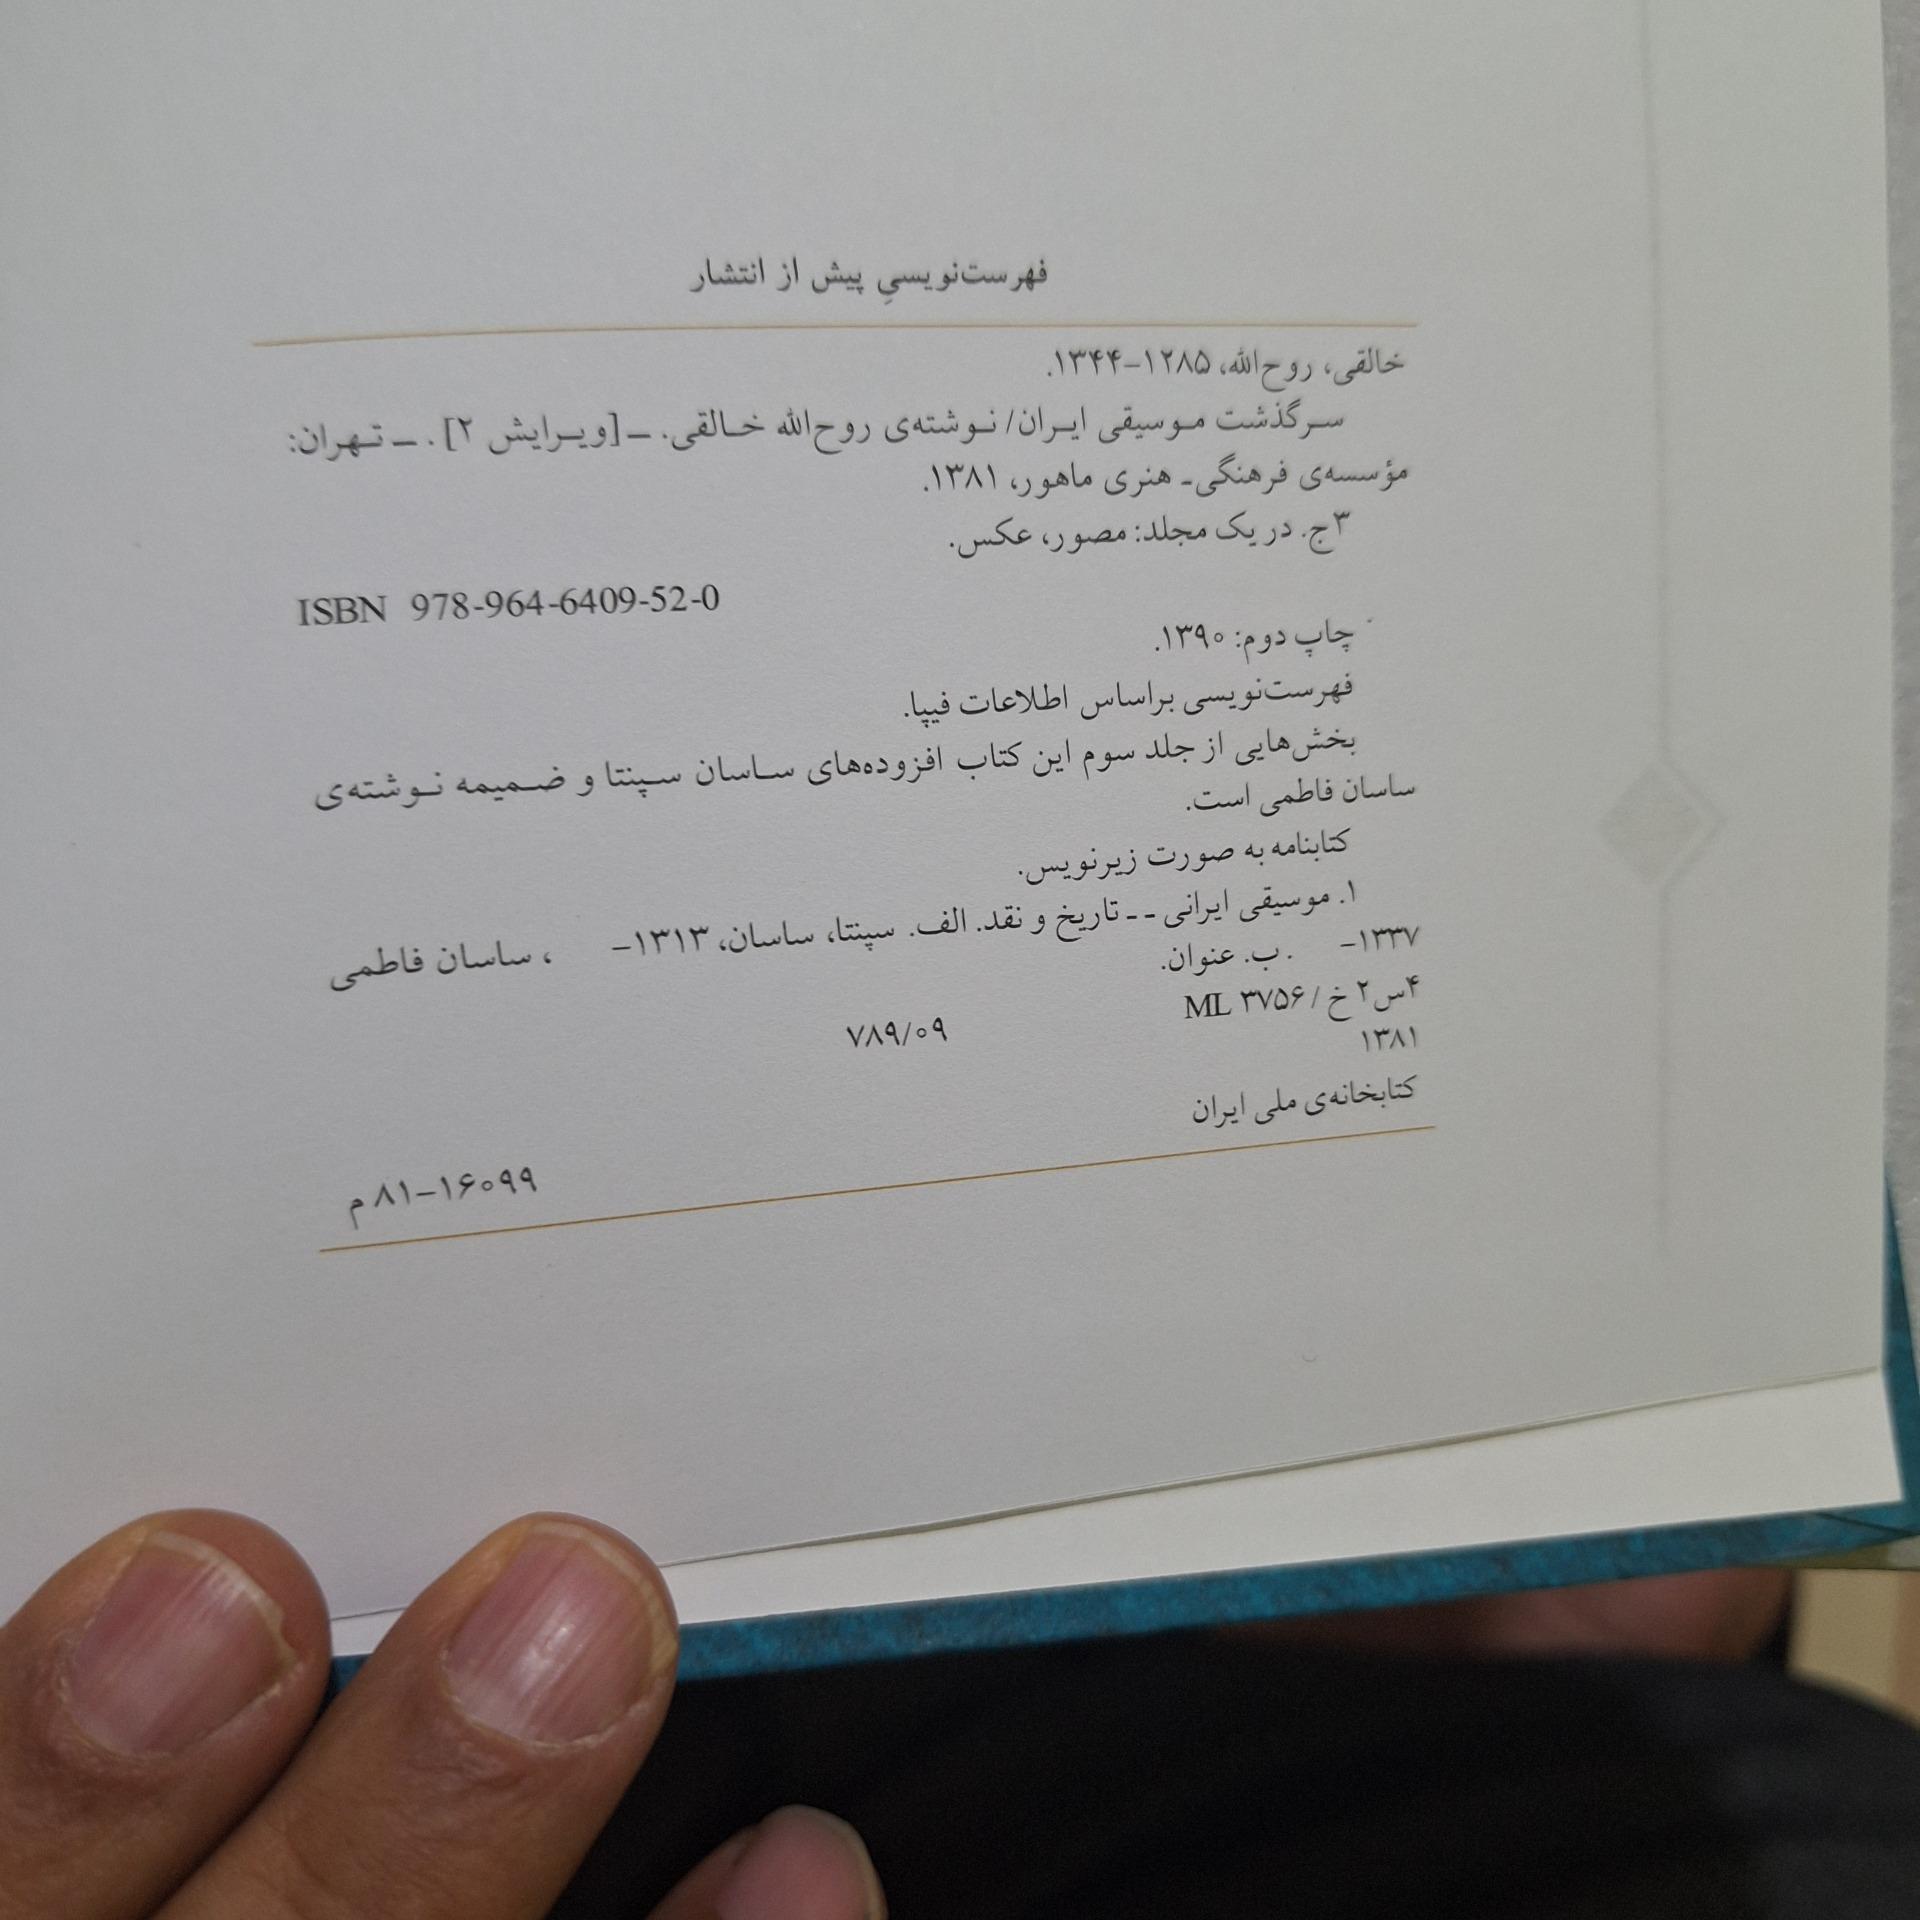 فهرست‌نویسیِ پیش از انتشار
خالقی، روح‌الله، ۱۲۸۵–۱۳۴۴.
سرگذشت موسیقی ایران/ نوشته‌ی روح‌الله خالقی. ــ [ویرایش ۲] . ــ تهران:
مؤسسه‌ی فرهنگی‌ـ هنری ماهور، ۱۳۸۱.
۳ج. در یک مجلد: مصور، عکس.
ISBN 978-964-6409-52-0
چاپ دوم: ۱۳۹۰.
فهرست‌نویسی براساس اطلاعات فیپا.
بخش‌هایی از جلد سوم این کتاب افزوده‌های ساسان سپنتا و ضمیمه نوشته‌ی
ساسان فاطمی است.
کتابنامه به صورت زیرنویس.
۱. موسیقی ایرانی ـ ـ تاریخ و نقد. الف. سپنتا، ساسان، ۱۳۱۳– ، ساسان فاطمی
۱۳۳۷– . ب. عنوان.
۴س۲خ/ ML ۳۷۵۶
۷۸۹/۰۹
۱۳۸۱
کتابخانه‌ی ملی ایران
۸۱–۱۶۰۹۹ م